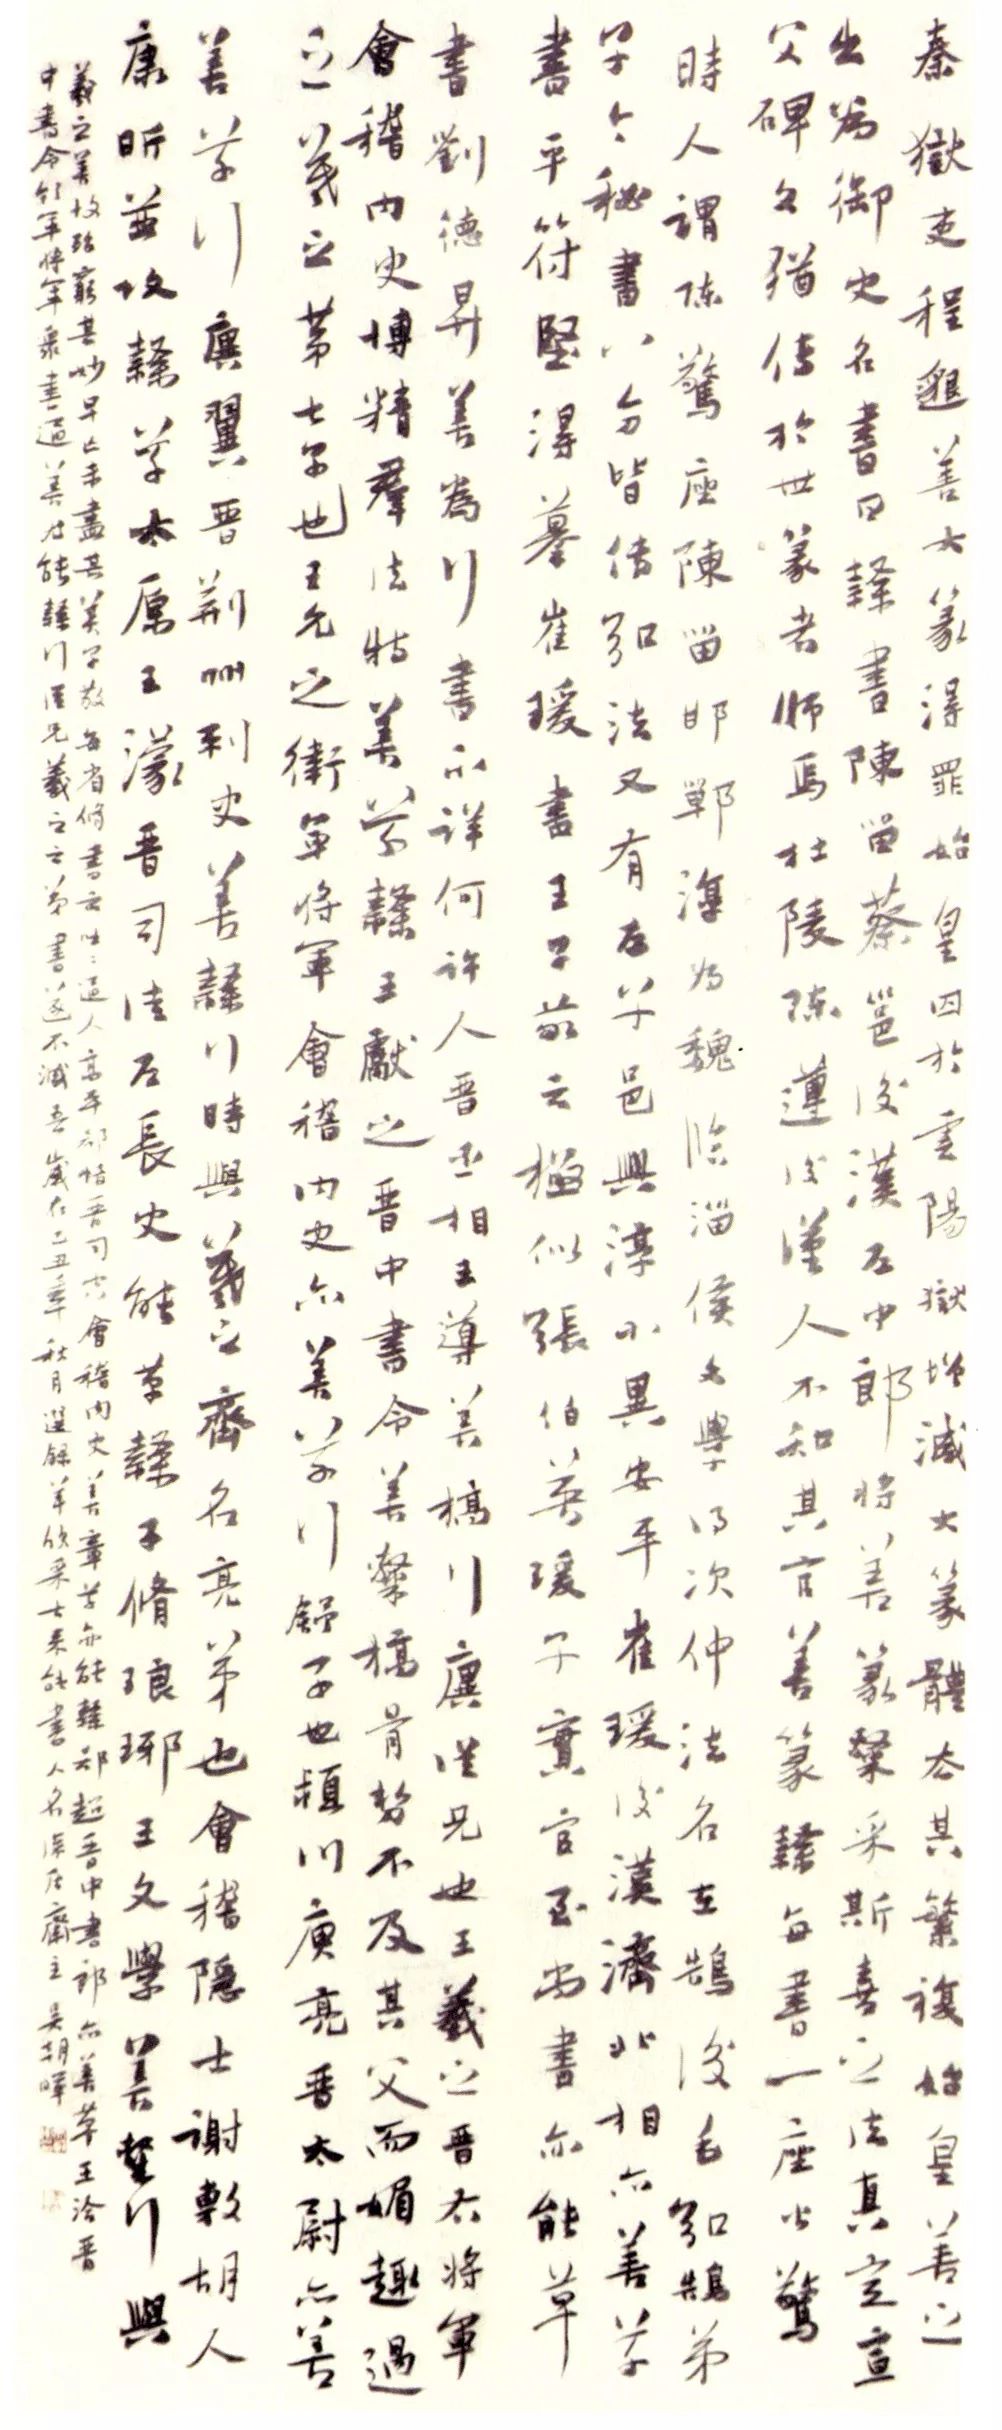 秦獄吏程邈善大篆得罪始皇囚於雲陽獄增減大篆體去其繁複始皇善之
出為御史名書曰隸書陳留蔡邕後漢左中郎將善篆隸采斯喜之法真定宣
父碑文猶傳於世篆者師焉杜陵陳遵後漢人不知其官善篆隸每書一座皆驚
時人謂陳驚座陳留邯鄲淳為魏臨淄侯文學得次仲法名在鵠後毛弘鵠弟
子今秘書八分皆傳弘法又有左子邑與淳小異安平崔瑗後漢濟北相亦善草
書平符堅得摹崔瑗書王子敬云極似張伯英瑗子寔官至尚書亦能草
書劉德昇善為行書不詳何許人晉丞相王導善槁行廙從兄也王羲之晉右將軍
會稽內史博精群法特善草隸王獻之晉中書令善隸槁骨勢不及其父而媚趣過
之羲之第七子也王允之衛軍將軍會稽內史亦善草行舒子也潁川庾亮晉太尉亦善
善草行廙翼晉荊州刺史善隸行時與羲之齊名亮弟也會稽隱士謝敷胡人
康昕並攻隸草太原王濛晉司徒左長史能草隸子脩琅琊王文學善隸行與
羲之善故殆窮其妙早亡未盡其美子敬每省脩書云咄咄逼人高平郗愔晉司空會稽內史善章草亦能隸郗超晉中書郎亦善草王洽晉
中書令領軍將軍眾書通善尤能隸行從兄羲之云弟書遂不減吾歲在乙丑年秋月選錄羊欣采古來能書人名 齋主吳朝暉